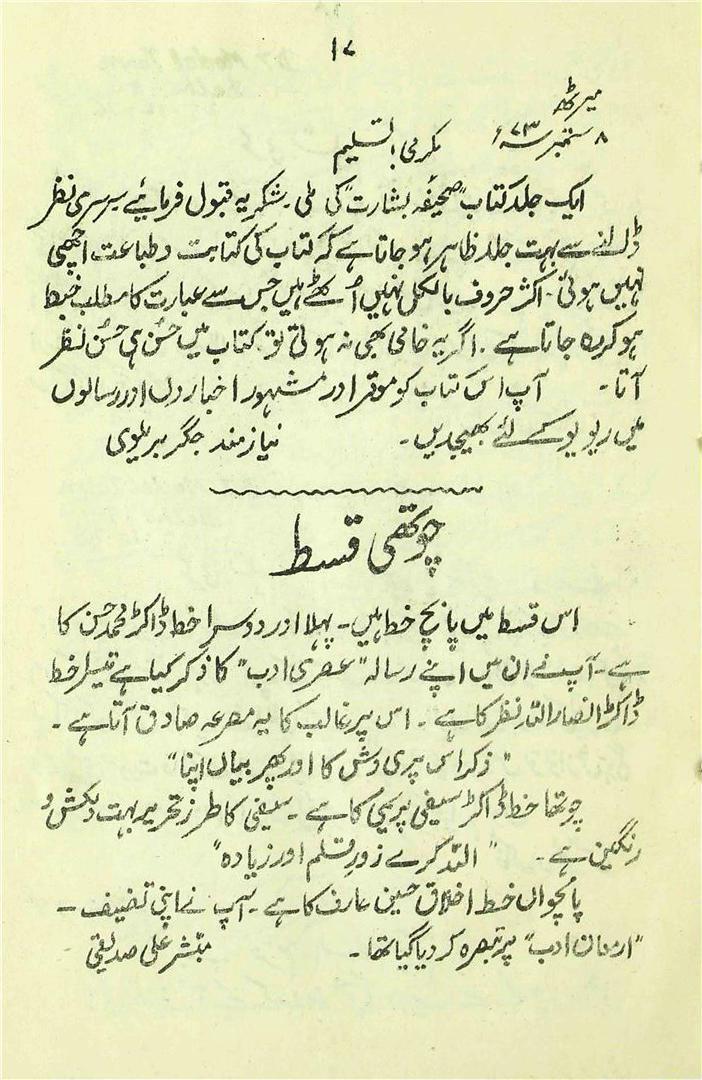 ۱۷
میرٹھ
۸ ستمبر ۷۳ء
مکرمی! تسلیم
ایک جلد کتاب "صحیفۂ بشارت" کی ملی۔ شکریہ قبول فرمایئے سرسری نظر
ڈالنے سے بہت جلد ظاہر ہو جاتا ہے کہ کتاب کی کتابت و طباعت اچھی
نہیں ہوئی۔ اکثر حروف بالکل نہیں اُٹھے ہیں جس سے عبارت کا مطلب خبط
ہو کر رہ جاتا ہے۔ اگر یہ خامی بھی نہ ہوتی تو کتاب میں حُسن ہی حُسن نظر
آتا۔ آپ اس کتاب کو موقر اور مشہور اخباروں اور رسالوں
میں ریویو کے لئے بھیجدیں۔ نیاز مند جگر بریلوی
چوتھی قسط
اس قسط میں پانچ خط ہیں۔ پہلا اور دوسرا خط ڈاکڑ محمد حسن کا
ہے۔ آپ نے ان میں اپنے رسالہ "عصری ادب" کا ذکر کیا ہے تیسرا خط
ڈاکڑ انصار اللہ نظر کا ہے۔ اس پر غالب کا یہ مصرعہ صادق آتا ہے۔
"ذکر اس پری وش کا اور پھر بیاں اپنا"
چوتھا خط ڈاکڑ سیفی پریمی کا ہے۔ سیفی کا طرز تحریر بہت دلکش و
رنگین ہے۔ "اللہ کرے زورِ قلم اور زیادہ"
پانچواں خط اخلاق حسین عارف کا ہے۔ آپ نے اپنی تصنیف۔
"ارمغان ادب" پر تبصرہ کر دیا گیا تھا۔ مبشر علی صدیقی